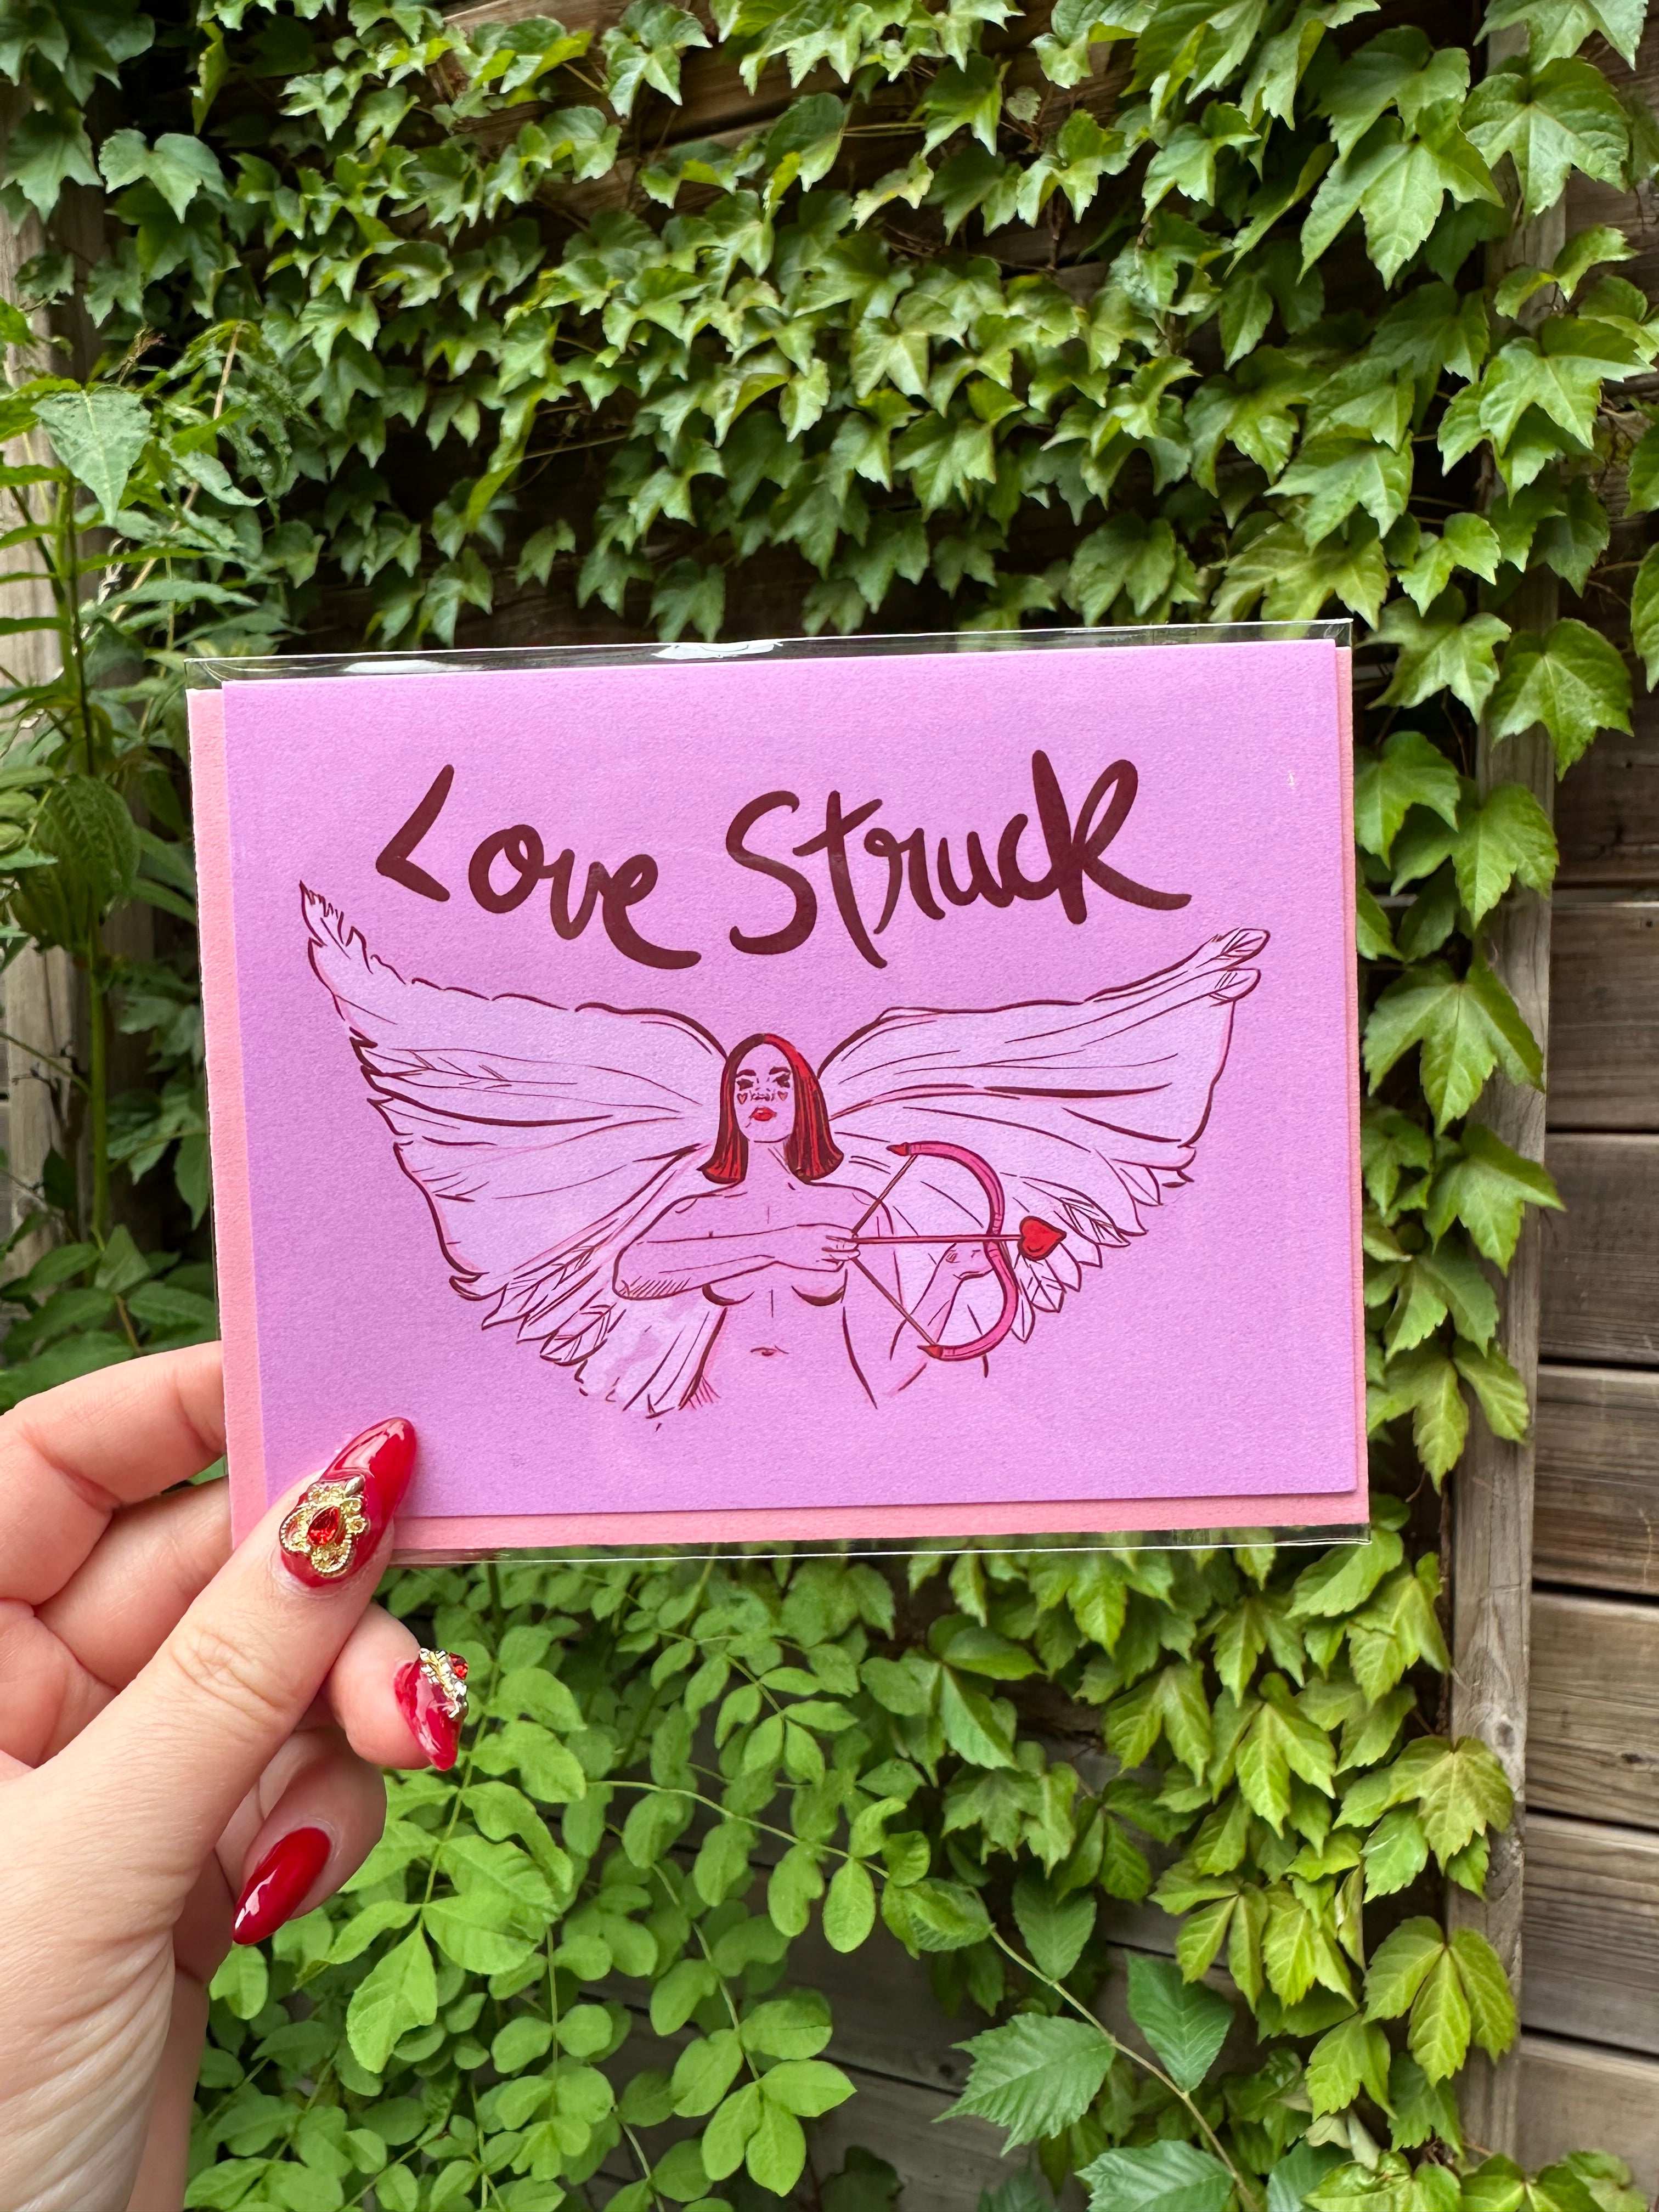 Love Struck